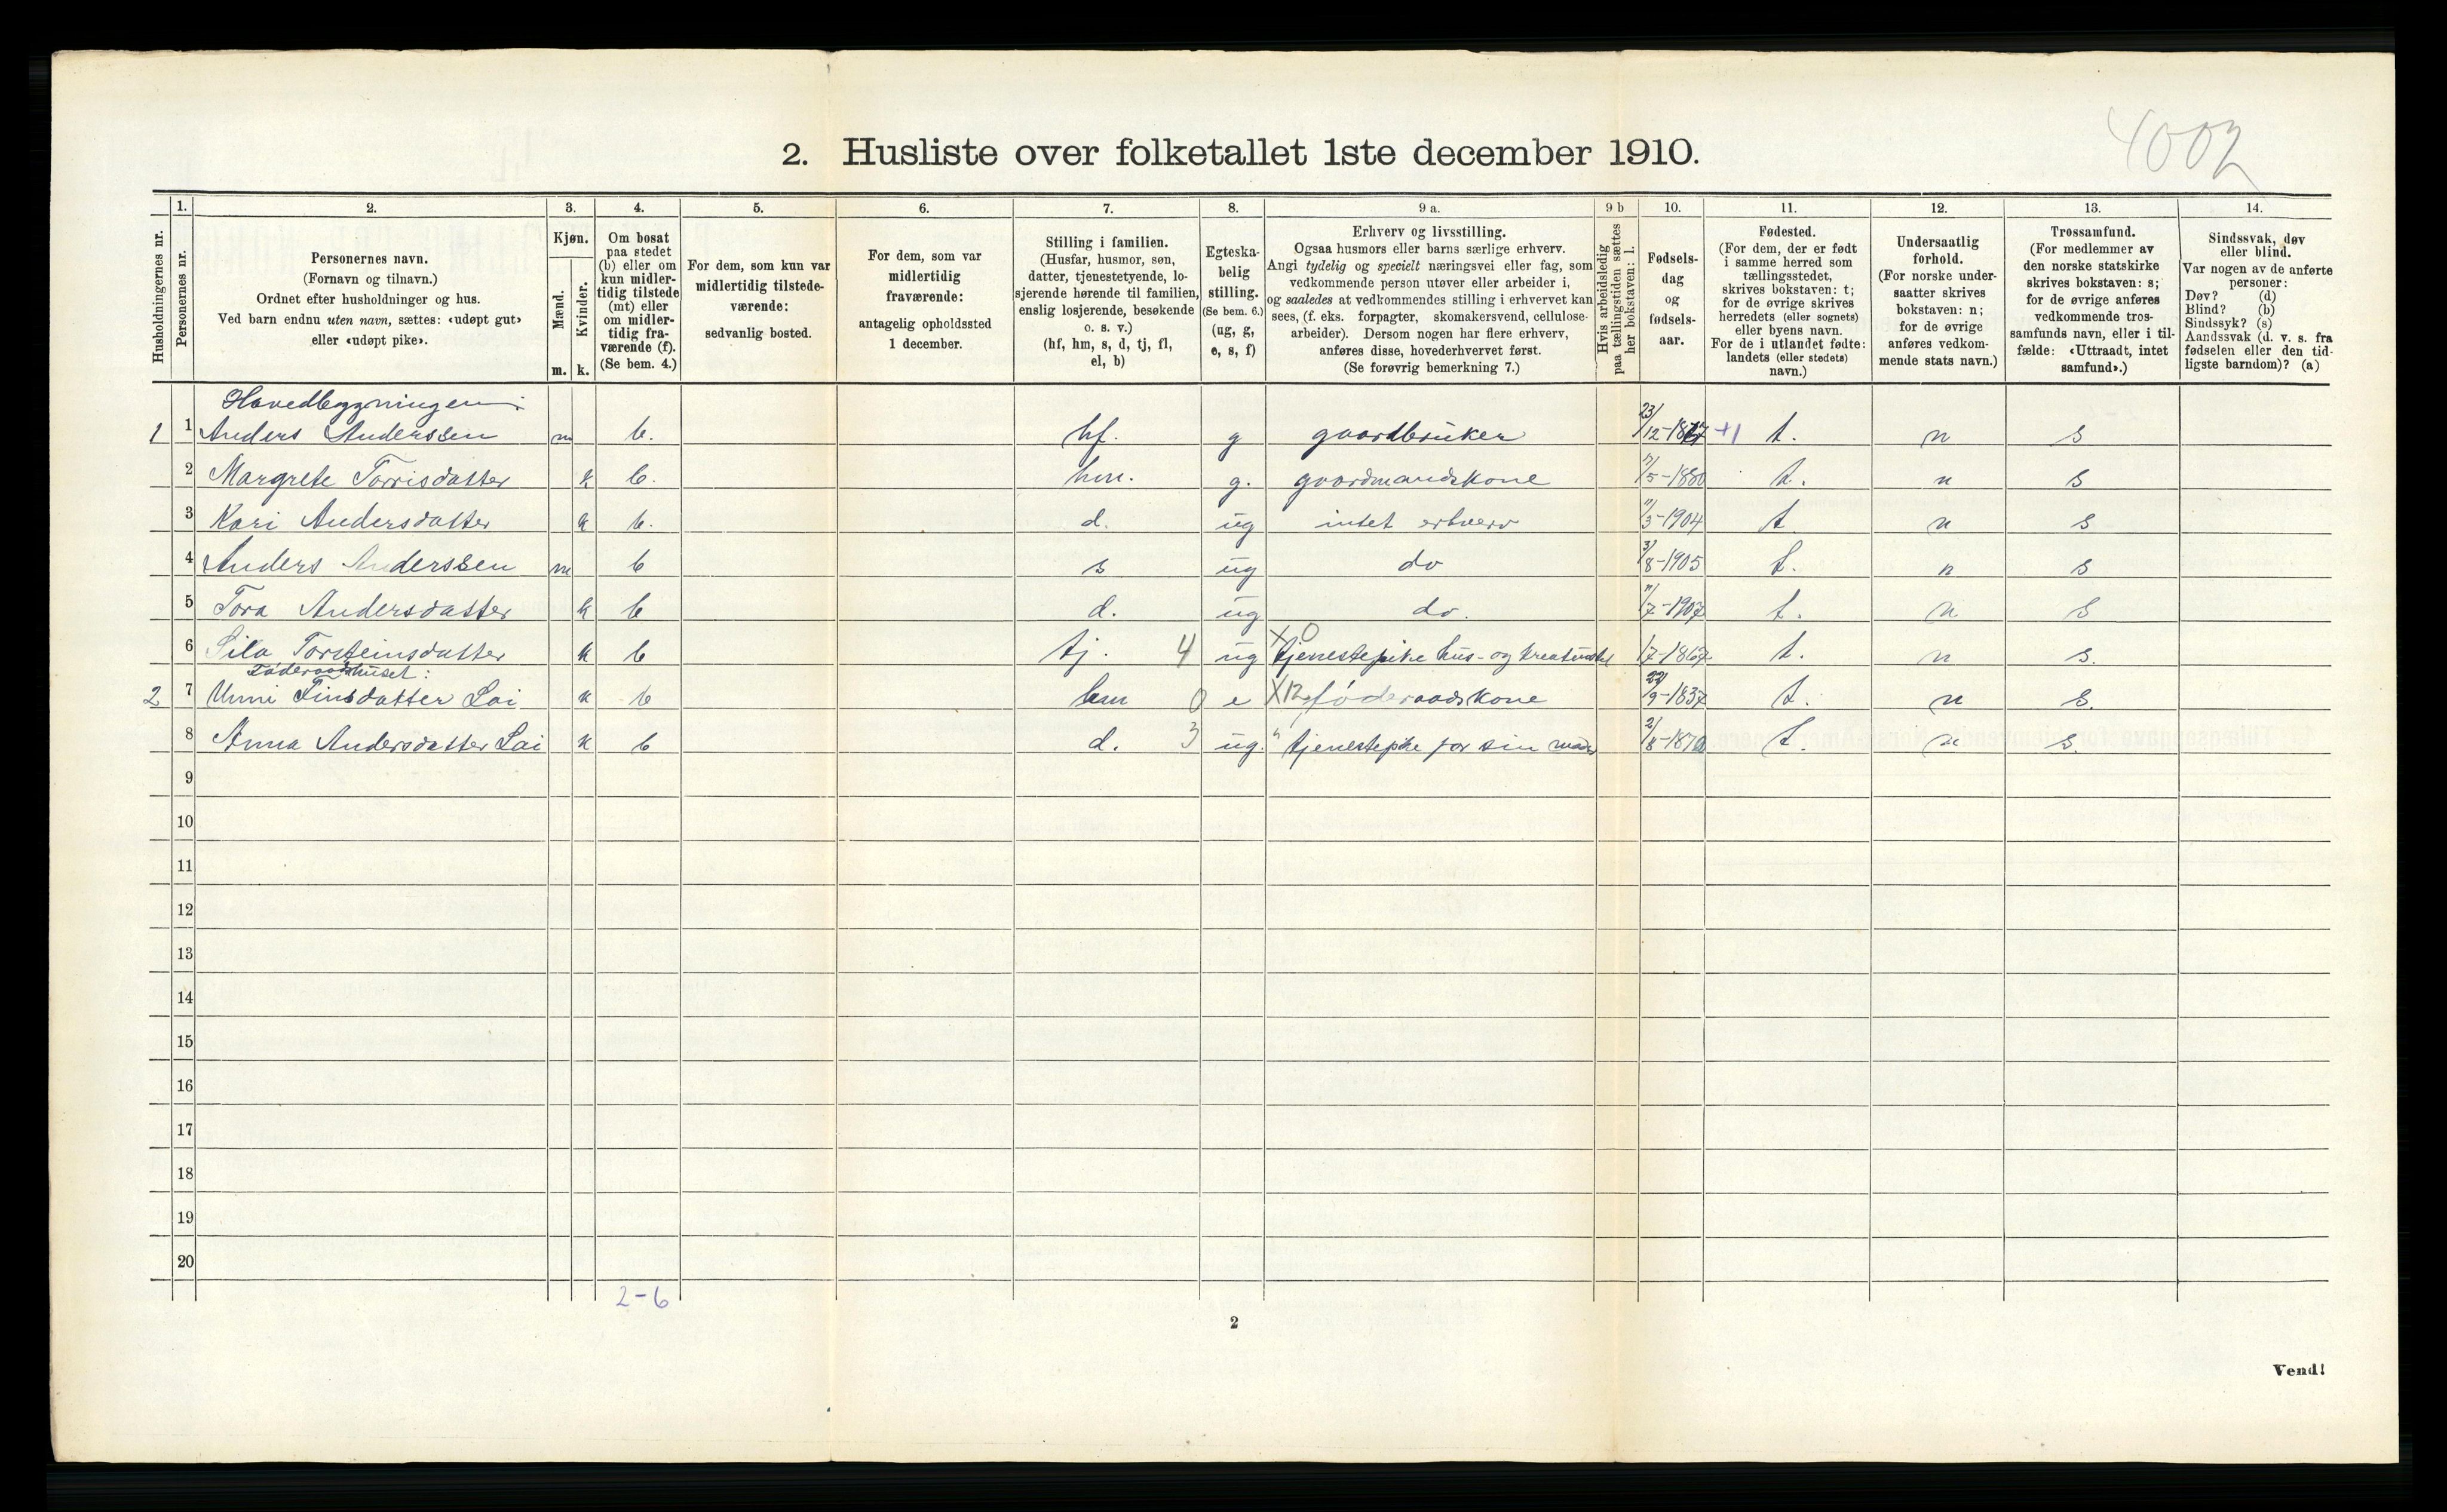 4002
2. Husliste over folketallet 1ste december 1910.
Husholdningernes nr.
1. Personernes nr.
2. Personernes navn.
(Fornavn og tilnavn.)
Ordnet efter husholdninger og hus.
Ved barn endnu uten navn, sættes: «udøpt gut»
eller «udøpt pike».
3. Kjøn.
Mænd. Kvinder.
m. k.
4. Om bosat
paa stedet
(b) eller om
kun midler-
tidig tilstede
(mt) eller
om midler-
tidig fra-
værende (f).
(Se bem. 4.)
5. For dem, som kun var
midlertidig tilstede-
værende:
sedvanlig bosted.
6. For dem, som var
midlertidig
fraværende:
antagelig opholdssted
1 december.
7. Stilling i familien.
(Husfar, husmor, søn,
datter, tjenestetyende, lo-
sjerende hørende til familien,
enslig losjerende, besøkende
o. s. v.)
(hf, hm, s, d, tj, fl,
el, b)
8. Egteska-
belig
stilling.
(Se bem. 6.)
(ug, g,
e, s, f)
9 a. Erhverv og livsstilling.
Ogsaa husmors eller barns særlige erhverv.
Angi tydelig og specielt næringsvei eller fag, som
vedkommende person utøver eller arbeider i,
og saaledes at vedkommendes stilling i erhvervet kan
sees, (f. eks. forpagter, skomakersvend, cellulose-
arbeider). Dersom nogen har flere erhverv,
anføres disse, hovederhvervet først.
(Se forøvrig bemerkning 7.)
9 b Hvis arbeidsledig
paa tællingstiden sættes
her bokstaven: l.
10. Fødsels-
dag
og
fødsels-
aar.
11. Fødested.
(For dem, der er født
i samme herred som
tællingsstedet,
skrives bokstaven: t;
for de øvrige skrives
herredets (eller sognets)
eller byens navn.
For de i utlandet fødte:
landets (eller stedets)
navn.)
12. Undersaatlig
forhold.
(For norske under-
saatter skrives
bokstaven: n;
for de øvrige
anføres vedkom-
mende stats navn.)
13. Trossamfund.
(For medlemmer av
den norske statskirke
skrives bokstaven: s;
for de øvrige anføres
vedkommende tros-
samfunds navn, eller i til-
fælde: «Uttraadt, intet
samfund».)
14. Sindssvak, døv
eller blind.
Var nogen av de anførte
personer:
Døv? (d)
Blind? (b)
Sindssyk? (s)
Aandssvak (d. v. s. fra
fødselen eller den tid-
ligste barndom)? (a)
Hovedbygningen:
1 1 Anders Anderssen m b. hf. g gaardbruker 23/12-1867 +1 t. n s
2 Margrete Torrisdatter k b. hm. g. gaardmandskone 7/5-1880 t. n s
3 Kari Andersdatter k b. d. ug intet erhverv 11/3-1904 t n s
4 Anders Anderssen m b s ug do 3/8-1905 t. n s
5 Tora Andersdatter k b d. ug do. 11/7-1907 t. n s
6 Torsteinsdatter k b tj. 4 ug X0 tjenestepike hus- og kreaturstel 1/7-1867 t. n s.
Føderaadshuset:
2 7 Unni Finsdatter Lai k b hm 0 e X12 føderaadskone 22/9-1837 t. n s.
8 Anna Andersdatter Lai k b d. 3 ug. " tjenestepike for sin moder 2/8-1870 t. n s.
9
10
11
12
13
14
15
16
17
18
19
20
2-6
2
Vend!